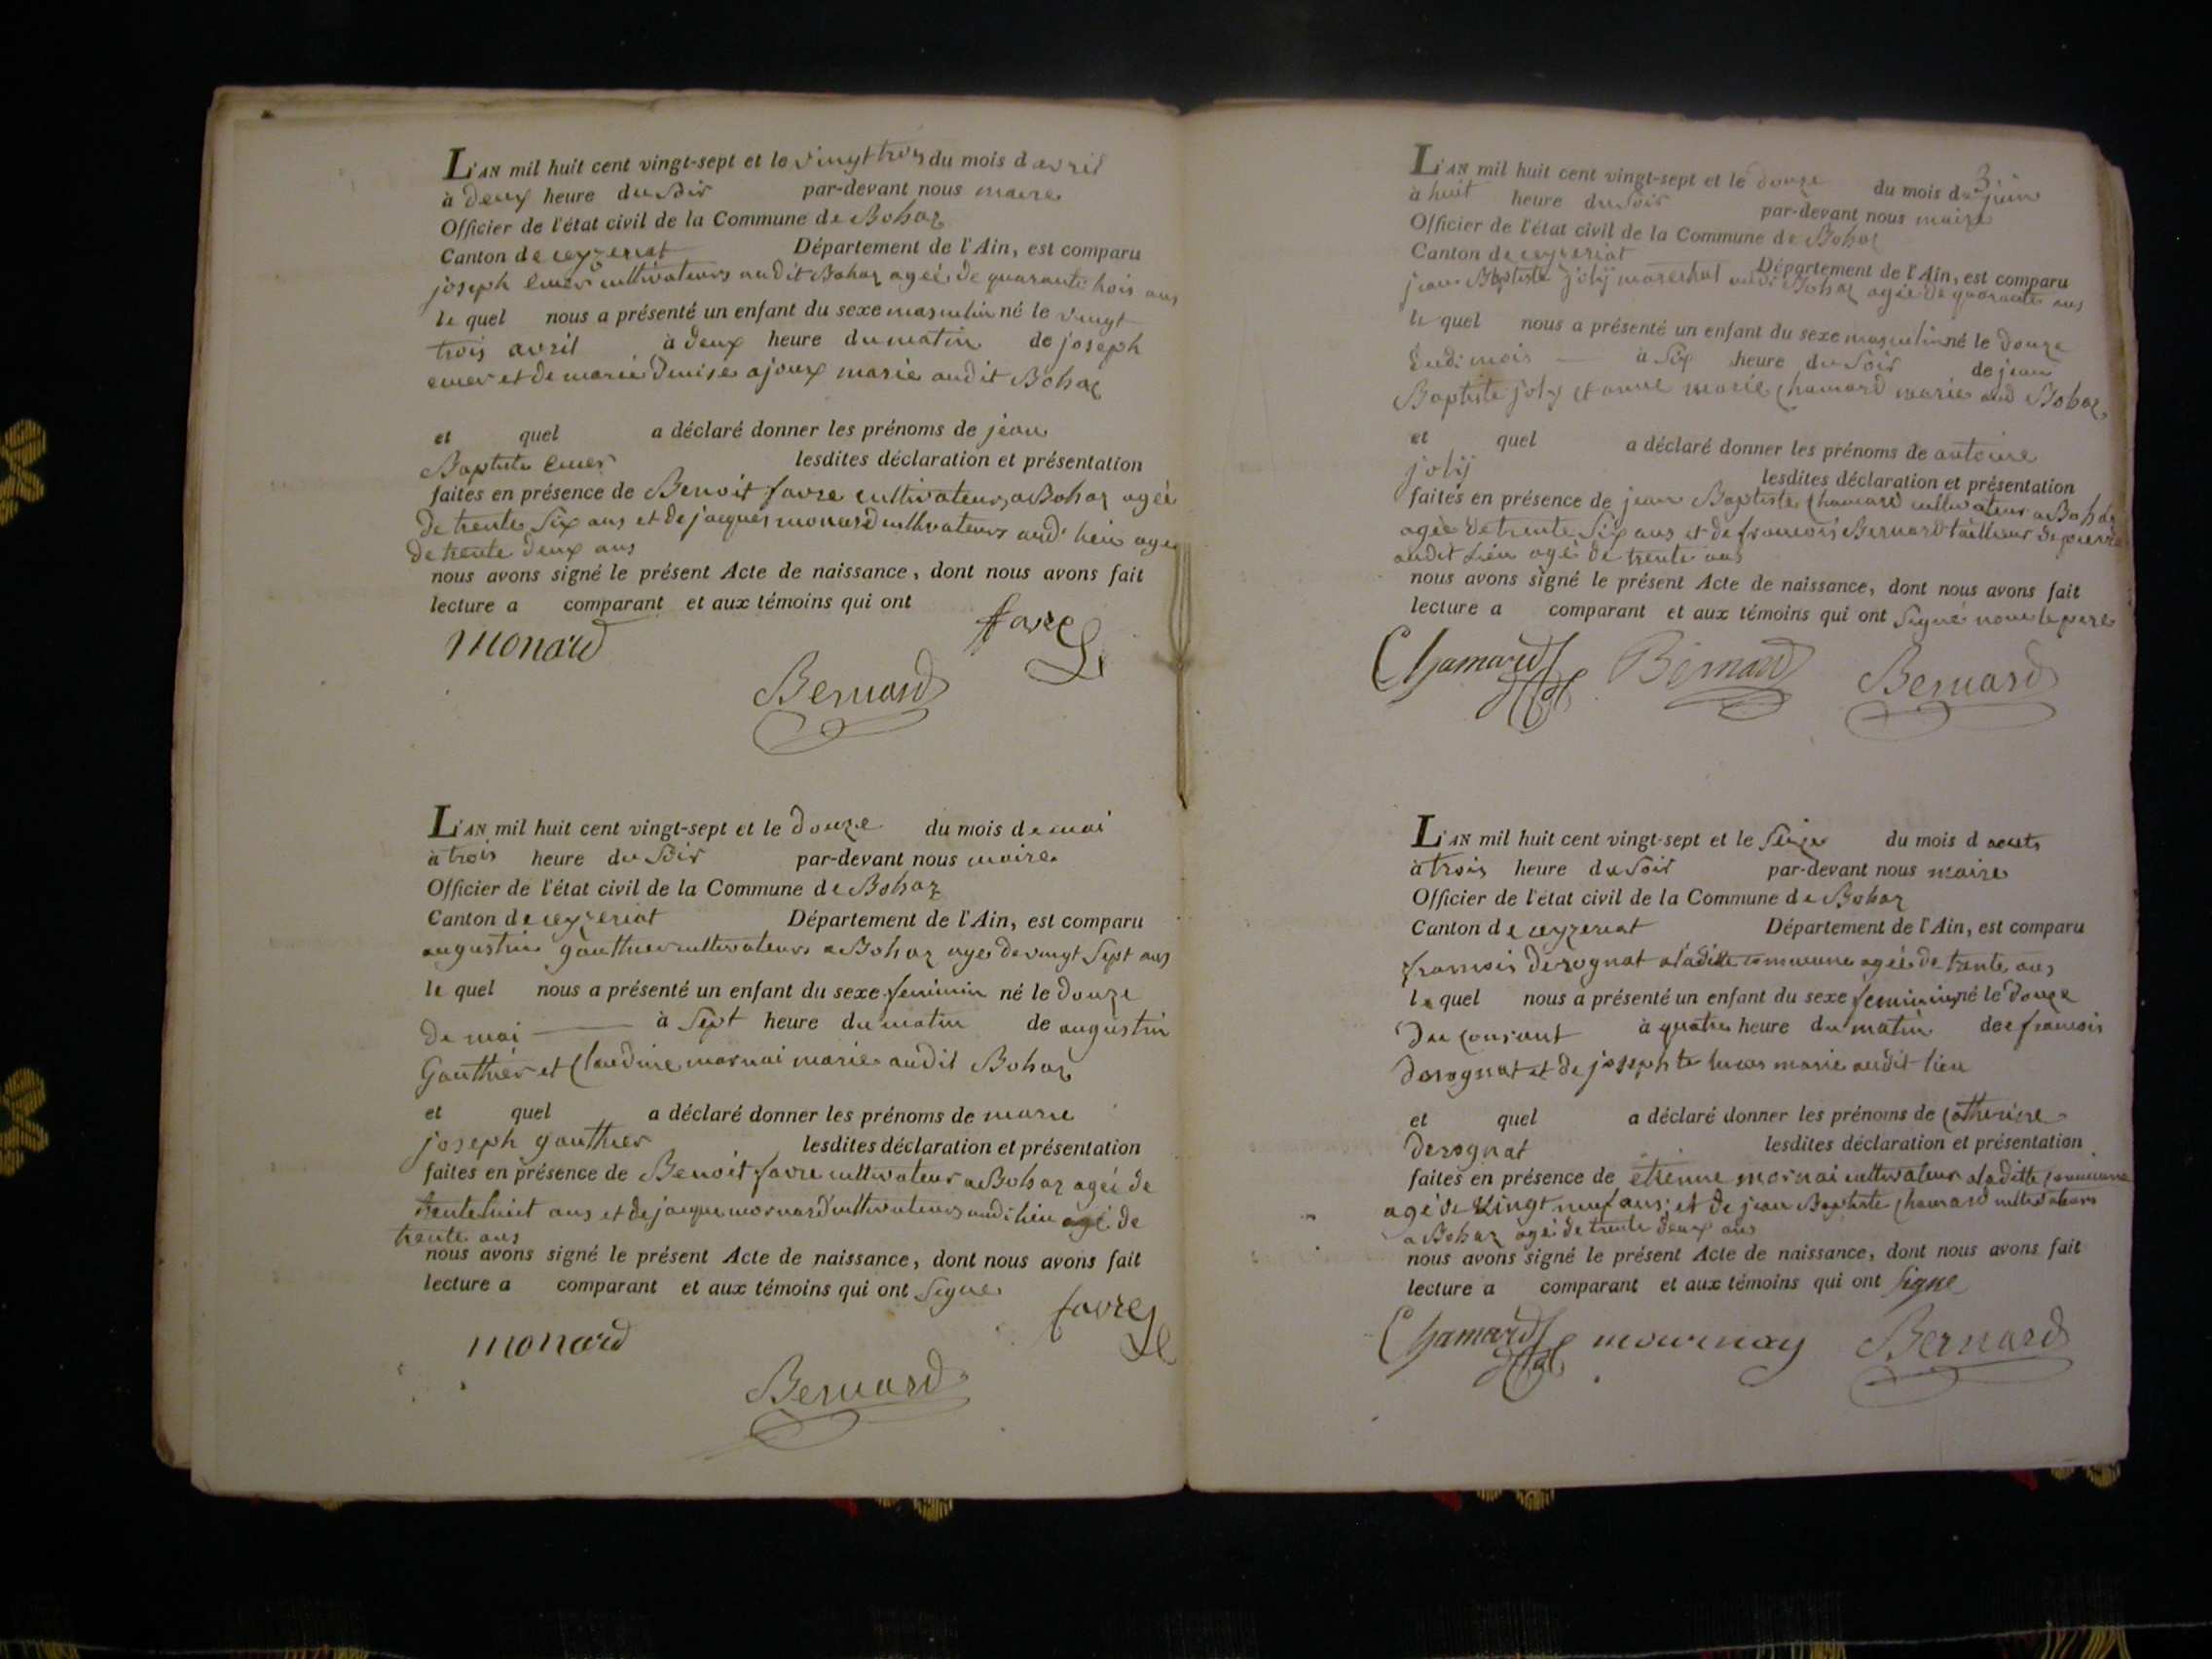 L'AN mil huit cent vingt-sept et le vingt trois du mois d avril
à deux heure du Soir par-devant nous maire
Officier de l'état civil de la Commune de Bohaz
Canton de ceyzeriat Département de l'Ain, est comparu
joseph cultivateurs audit Bohaz ageé de quarante trois ans
le quel nous a présenté un enfant du sexe masculin né le vingt
trois avril à deux heure du matin de joseph
et de marie Denise ajoux marie audit Bohaz
et quel a déclaré donner les prénoms de jean
Baptiste lesdites déclaration et présentation
faites en présence de Benoit favre cultivateurs a Bohaz ageé
de trente Six ans et de jacques monard cultivateurs aud' lieu age
de trente deux ans
nous avons signé le présent Acte de naissance, dont nous avons fait
lecture a comparant et aux témoins qui ont
favre
monard
Bernard
L'AN mil huit cent vingt-sept et le douze du mois de mai
à trois heure du Soir par-devant nous maire
Officier de l'état civil de la Commune de Bohaz
Canton de ceyzeriat Département de l'Ain, est comparu
augustin gauthier cultivateurs a Bohaz age de vingt Sept ans
le quel nous a présenté un enfant du sexe feminin né le douze
de mai à Sept heure du matin de augustin
Gauthier et Claudine mornai marie audit Bohaz
et quel a déclaré donner les prénoms de marie
joseph gauthier lesdites déclaration et présentation
faites en présence de Benoit favre cultivateur a Bohaz ageé de
trente huit ans et de jacque mornard cultivateurs audi lieu agé de
trente ans
nous avons signé le présent Acte de naissance, dont nous avons fait
lecture a comparant et aux témoins qui ont Signe
favre
monard
Bernard
3
L'AN mil huit cent vingt-sept et le douze du mois de juin
à huit heure du Soir par-devant nous maire
Officier de l'état civil de la Commune de Bohaz
Canton de ceyzeriat Département de l'Ain, est comparu
jean Baptiste jolij marechal audi Bohaz ageé de quarante ans
le quel nous a présenté un enfant du sexe masculin né le douze
dudi mois à Six heure du Soir de jean
Baptiste joly et anne marie Chamard marie aud Bohaz
et quel a déclaré donner les prénoms de antoine
jolij lesdites déclaration et présentation
faites en présence de jean Baptiste Chamard cultivateur a Bohaz
ageé de trente Six ans et de francois Bernard tailleur de pierre
audit Lieu agé de trente ans
nous avons signé le présent Acte de naissance, dont nous avons fait
lecture a comparant et aux témoins qui ont Signé non le pere
Chamard Bernard Bernard
L'AN mil huit cent vingt-sept et le Seize du mois d aouts
à trois heure du Soir par-devant nous maire
Officier de l'état civil de la Commune de Bohaz
Canton de ceyzeriat Département de l'Ain, est comparu
francois derognat a ladille commune ageé de trente ans
le quel nous a présenté un enfant du sexe feminin né le douze
Du Courant à quatre heure du matin de francois
derognat et de josephte lucas marie audit lieu
et quel a déclaré donner les prénoms de Catherine
derognat lesdites déclaration et présentation
faites en présence de etienne mornai cultivateur a laditte commune
agé de Vingt neuf ans et de jean Baptiste Chamard cultivateurs
a Bohaz agé de trente deux ans
nous avons signé le présent Acte de naissance, dont nous avons fait
lecture a comparant et aux témoins qui ont Signe
Chamard mournay Bernard